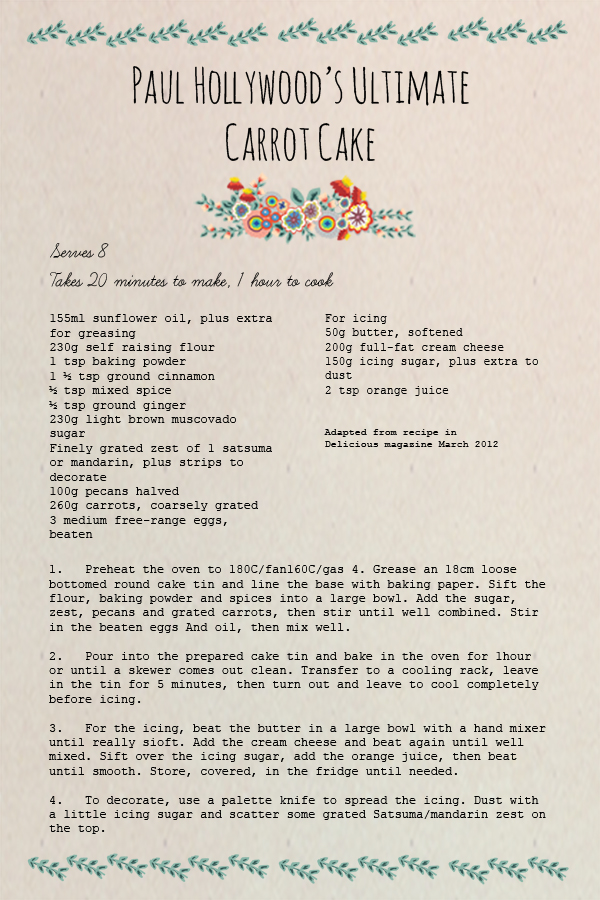 Paul Hollywood's Ultimate
Carrot Cake
Serves 8
Takes 20 minutes to make, 1 hour to cook
155ml sunflower oil, plus extra
for greasing
230g self raising flour
1 tsp baking powder
1 ½ tsp ground cinnamon
½ tsp mixed spice
½ tsp ground ginger
230g light brown muscovado
sugar
Finely grated zest of 1 satsuma
or mandarin, plus strips to
decorate
100g pecans halved
260g carrots, coarsely grated
3 medium free-range eggs,
beaten
For icing
50g butter, softened
200g full-fat cream cheese
150g icing sugar, plus extra to
dust
2 tsp orange juice
Adapted from recipe in
Delicious magazine March 2012
1. Preheat the oven to 180C/fan160C/gas 4. Grease an 18cm loose
bottomed round cake tin and line the base with baking paper. Sift the
flour, baking powder and spices into a large bowl. Add the sugar,
zest, pecans and grated carrots, then stir until well combined. Stir
in the beaten eggs And oil, then mix well.
2. Pour into the prepared cake tin and bake in the oven for 1hour
or until a skewer comes out clean. Transfer to a cooling rack, leave
in the tin for 5 minutes, then turn out and leave to cool completely
before icing.
3. For the icing, beat the butter in a large bowl with a hand mixer
until really sioft. Add the cream cheese and beat again until well
mixed. Sift over the icing sugar, add the orange juice, then beat
until smooth. Store, covered, in the fridge until needed.
4. To decorate, use a palette knife to spread the icing. Dust with
a little icing sugar and scatter some grated Satsuma/mandarin zest on
the top.